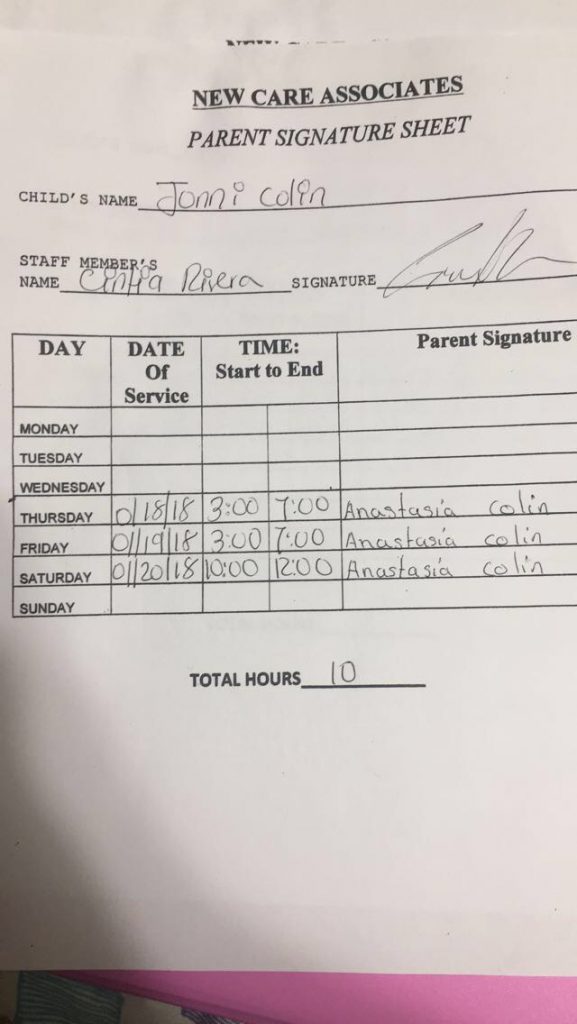 NEW CARE ASSOCIATES
PARENT SIGNATURE SHEET
CHILD'S NAME Jonni Colin
STAFF MEMBER'S
NAME Cintia Rivera SIGNATURE
DAY DATE Of Service TIME: Start to End Parent Signature
MONDAY
TUESDAY
WEDNESDAY
THURSDAY 0/18/18 3:00 7:00 Anastasia Colin
FRIDAY 01/19/18 3:00 7:00 Anastasia Colin
SATURDAY 01/20/18 10:00 12:00 Anastasia Colin
SUNDAY
TOTAL HOURS 10